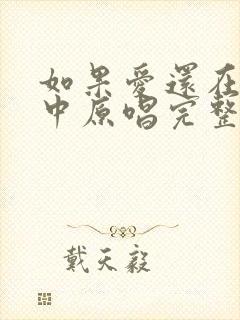 如果愛還在
中原唱完整
戴天毅